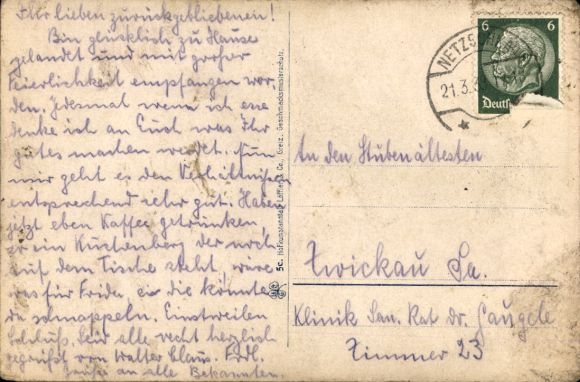 Ihr lieben zurückgebliebenen!
Bin glücklich zu Hause
gelandet und mit großer
Feierlichkeit empfangen wor-
den. Jedesmal wenn ich esse
denke ich an Euch was Ihr
gutes machen werdet. Nun
mir geht es den Verhältnissen
entsprechend sehr gut. Habe
jetzt eben Kaffee getrunken,
so ein Kuchenberg der noch
auf dem Tische steht, wäre
was für Frida, die könnte
da schnappeln. Einstweilen
Schluß. Seid alle recht herzlich
gegrüßt von Walter Claus.
Grüße an alle Bekannten.
5c. Hofkunstanstalt Löffler & Co., Greiz. Geschmacksmusterschutz.
NETZSCH
21.3.
6 6
Deutsch
An den Stubenältesten
Zwickau Sa.
Klinik San. Rat Dr. Gaugele
Zimmer 23